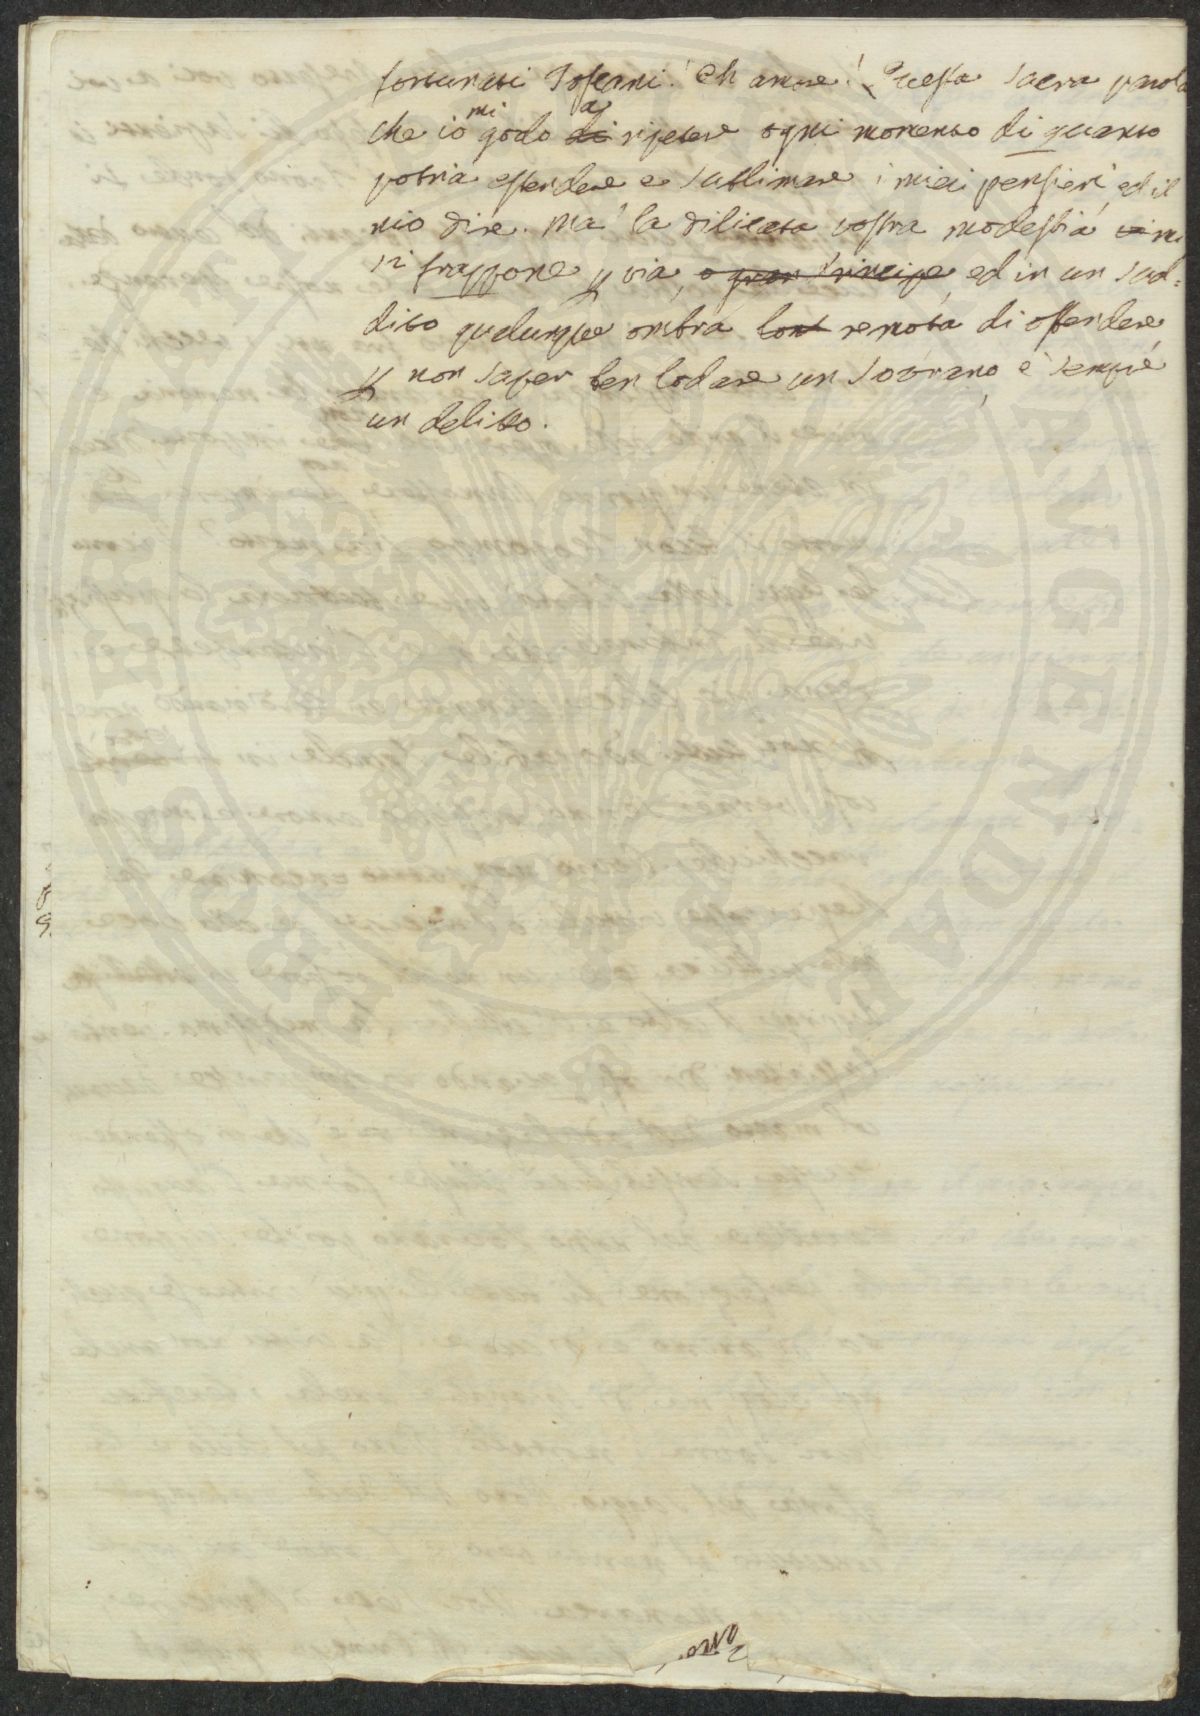 fortunati Toscani! Eh amore! Questa sacra parola
che io mi godo di a ripetere ogni momento di quanto
potria estendere e sublimare i miei pensieri ed il
mio dire. Ma la dilicata vostra modestia
si frappone p via, o gran Principe ed in un sud=
dito qualunque ombra remota di offendere
p non saper ben lodare un Sovrano, è sempre
un delitto.